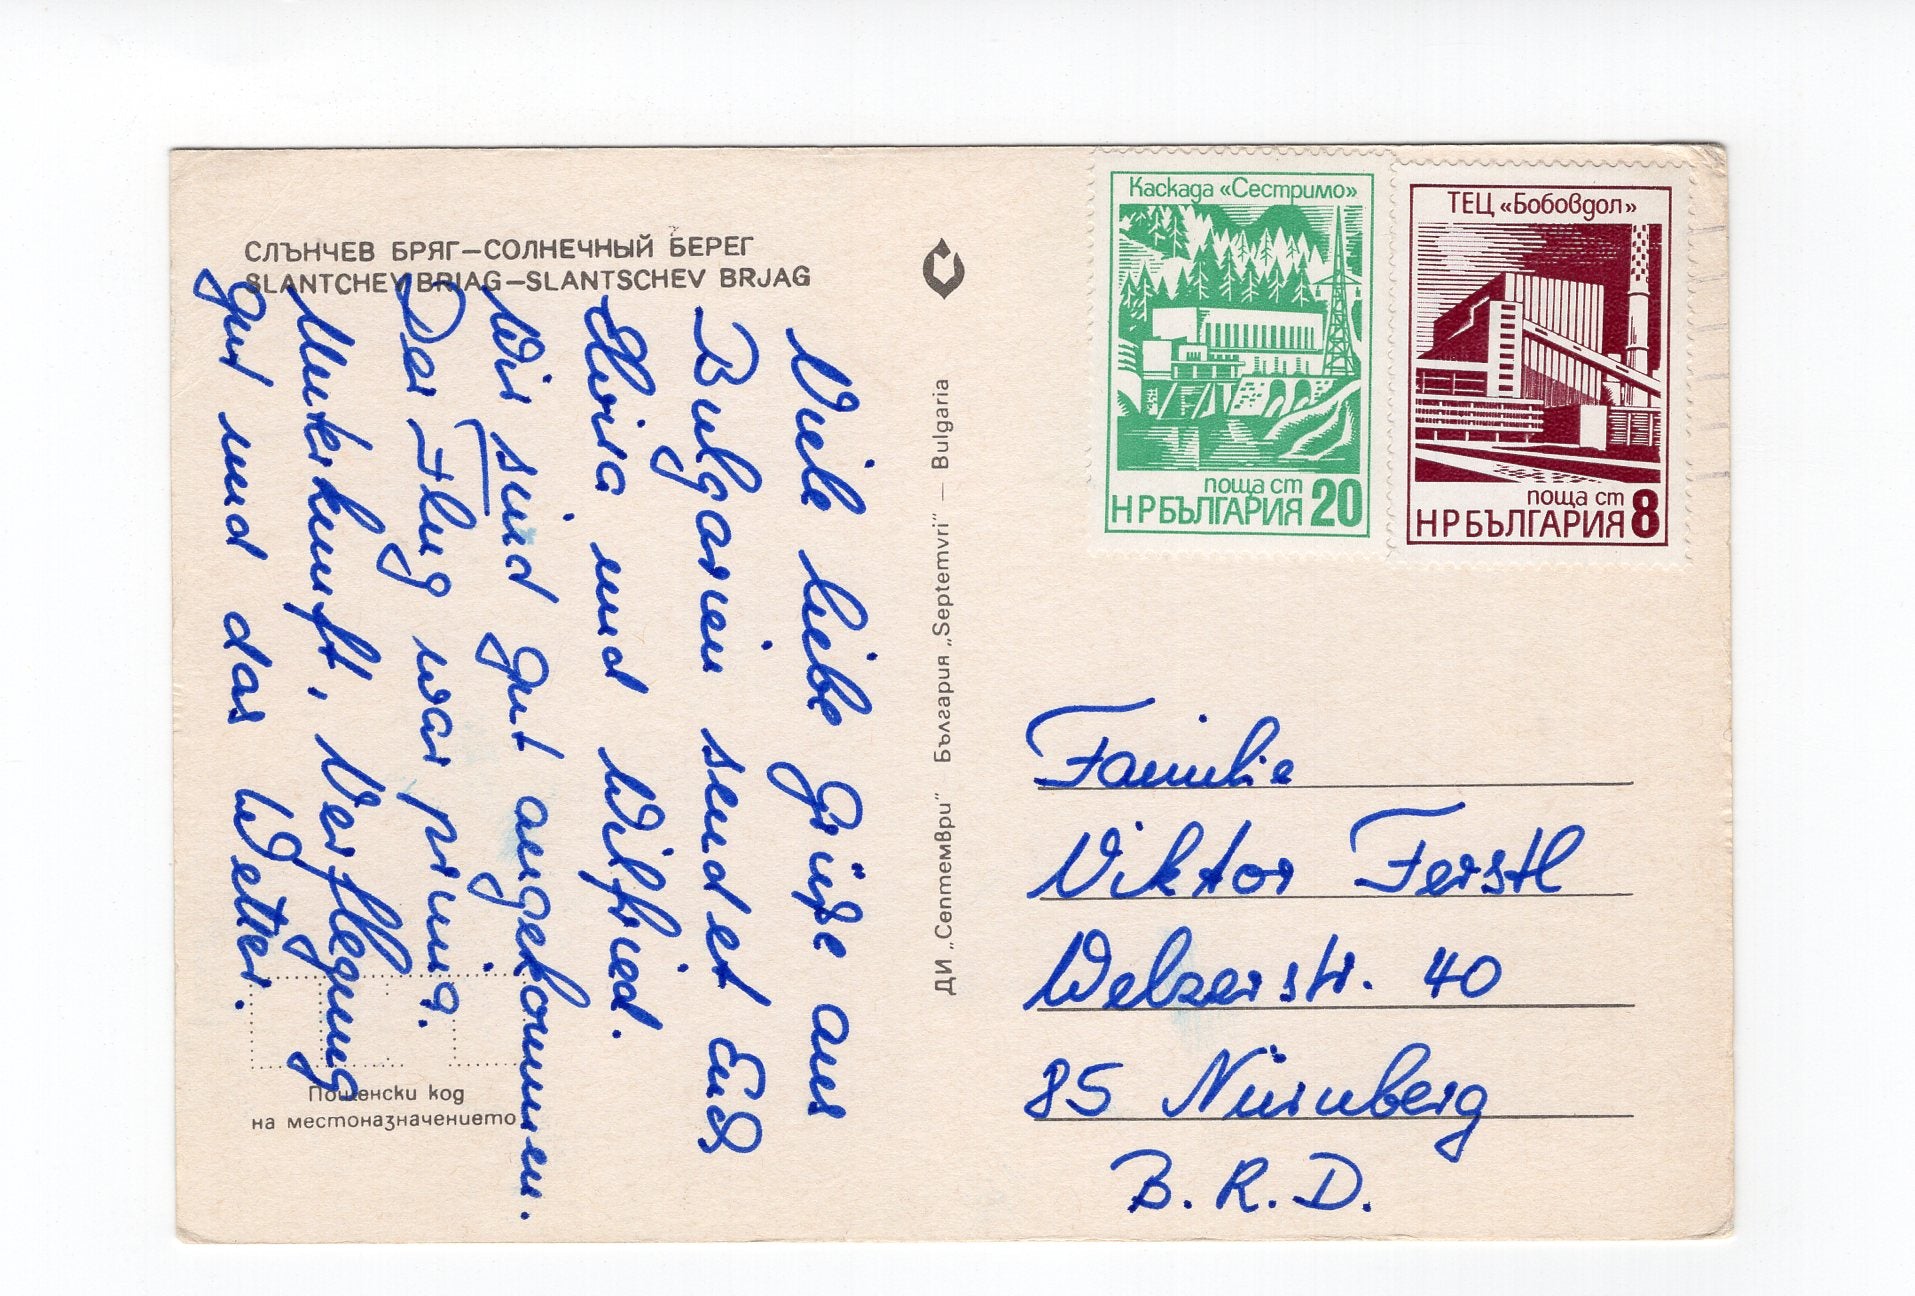 СЛЪНЧЕВ БРЯГ–СОЛНЕЧНЫЙ БЕРЕГ
SLANTCHEV BRIAG–SLANTSCHEV BRJAG
Viele liebe Grüße aus
Bulgarien sendet Euch
und Wilfried.
Wir sind gut angekommen.
Der Flug war prima.
Unterkunft, Verpflegung
gut und das Wetter.
Пощенски код
на местоназначението
ДИ „Септември“ България „Septemvri“ – Bulgaria
Каскада «Сестримо»
поща ст
НРБЪЛГАРИЯ 20
ТЕЦ «Бобовдол»
поща ст
НРБЪЛГАРИЯ 8
Familie
Viktor Ferstl
Welserstr. 40
85 Nürnberg
B. R. D.